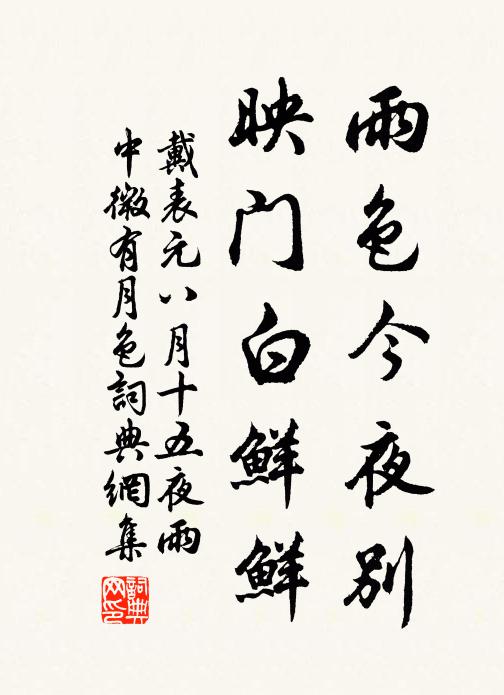 雨色今夜别
映门白鮮鮮
戴表元八月十五夜雨
中微有月色詞典網集
詞典網印